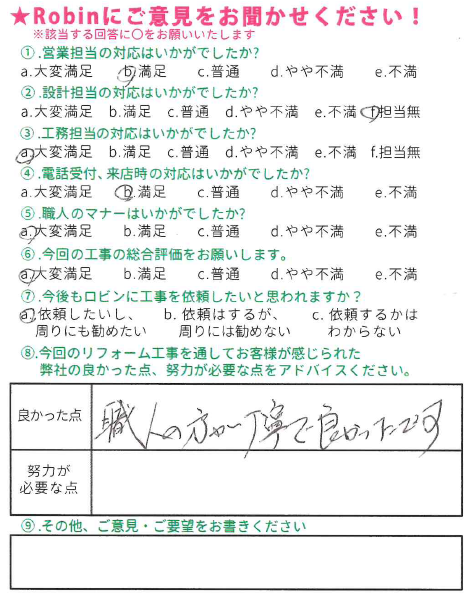 ★Robinにご意見をお聞かせください！
※該当する回答に〇をお願いいたします
①.営業担当の対応はいかがでしたか?
a.大変満足 b.満足 c.普通 d.やや不満 e.不満
②.設計担当の対応はいかがでしたか?
a.大変満足 b.満足 c.普通 d.やや不満 e.不満 f.担当無
③.工務担当の対応はいかがでしたか?
a.大変満足 b.満足 c.普通 d.やや不満 e.不満 f.担当無
④.電話受付、来店時の対応はいかがでしたか?
a.大変満足 b.満足 c.普通 d.やや不満 e.不満
⑤.職人のマナーはいかがでしたか?
a.大変満足 b.満足 c.普通 d.やや不満 e.不満
⑥.今回の工事の総合評価をお願いします。
a.大変満足 b.満足 c.普通 d.やや不満 e.不満
⑦.今後もロビンに工事を依頼したいと思われますか？
a.依頼したいし、 b. 依頼はするが、 c. 依頼するかは
周りにも勧めたい 周りには勧めない わからない
⑧.今回のリフォーム工事を通してお客様が感じられた
弊社の良かった点、努力が必要な点をアドバイスください。
良かった点 職人の方が丁寧で良かったです
努力が
必要な点
⑨.その他、ご意見・ご要望をお書きください